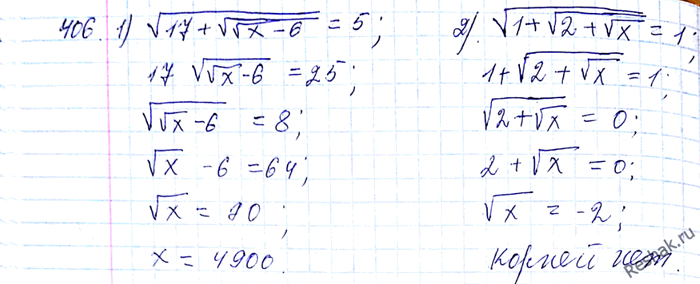 406. 1) √(17 + √(√x - 6)) = 5;
17 √(√x - 6) = 25;
√(√x - 6) = 8;
√x - 6 = 64;
√x = 70;
x = 4900.
2). √(1 + √(2 + √x)) = 1;
1 + √(2 + √x) = 1;
√(2 + √x) = 0;
2 + √x = 0;
√x = -2;
корней нет.
Reshak.ru